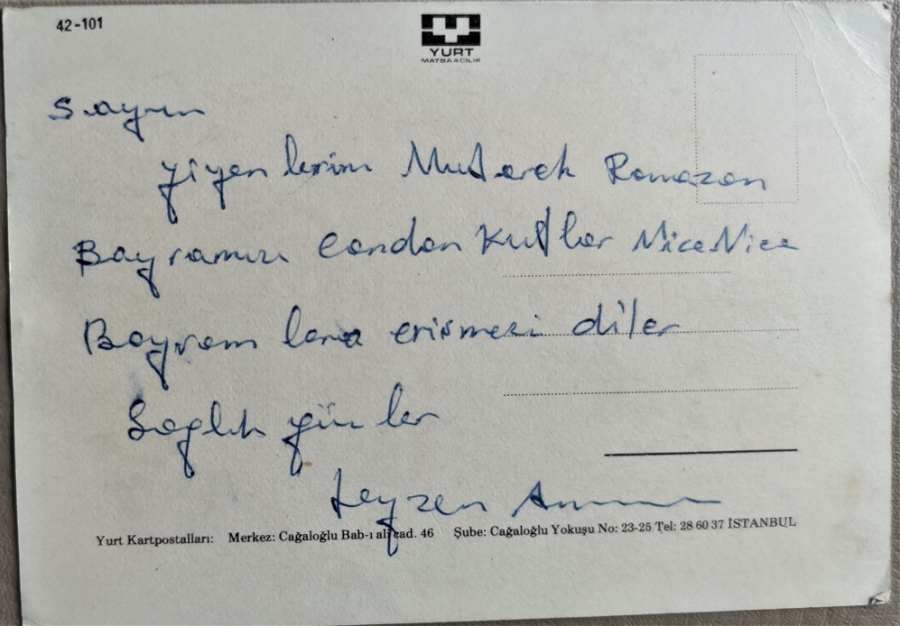 42-101
YURT
MATBAACILIK
Sayın
yiyenlerim Mubarek Ramazan
Bayramını Candan Kutlar Nice Nice
Bayramlara erişmezi diler
Sağlık günler
Teyzen
Yurt Kartpostalları: Merkez: Cağaloğlu Bab-ı ali cad. 46 Şube: Cağaloğlu Yokuşu No: 23-25 Tel: 28 60 37 İSTANBUL